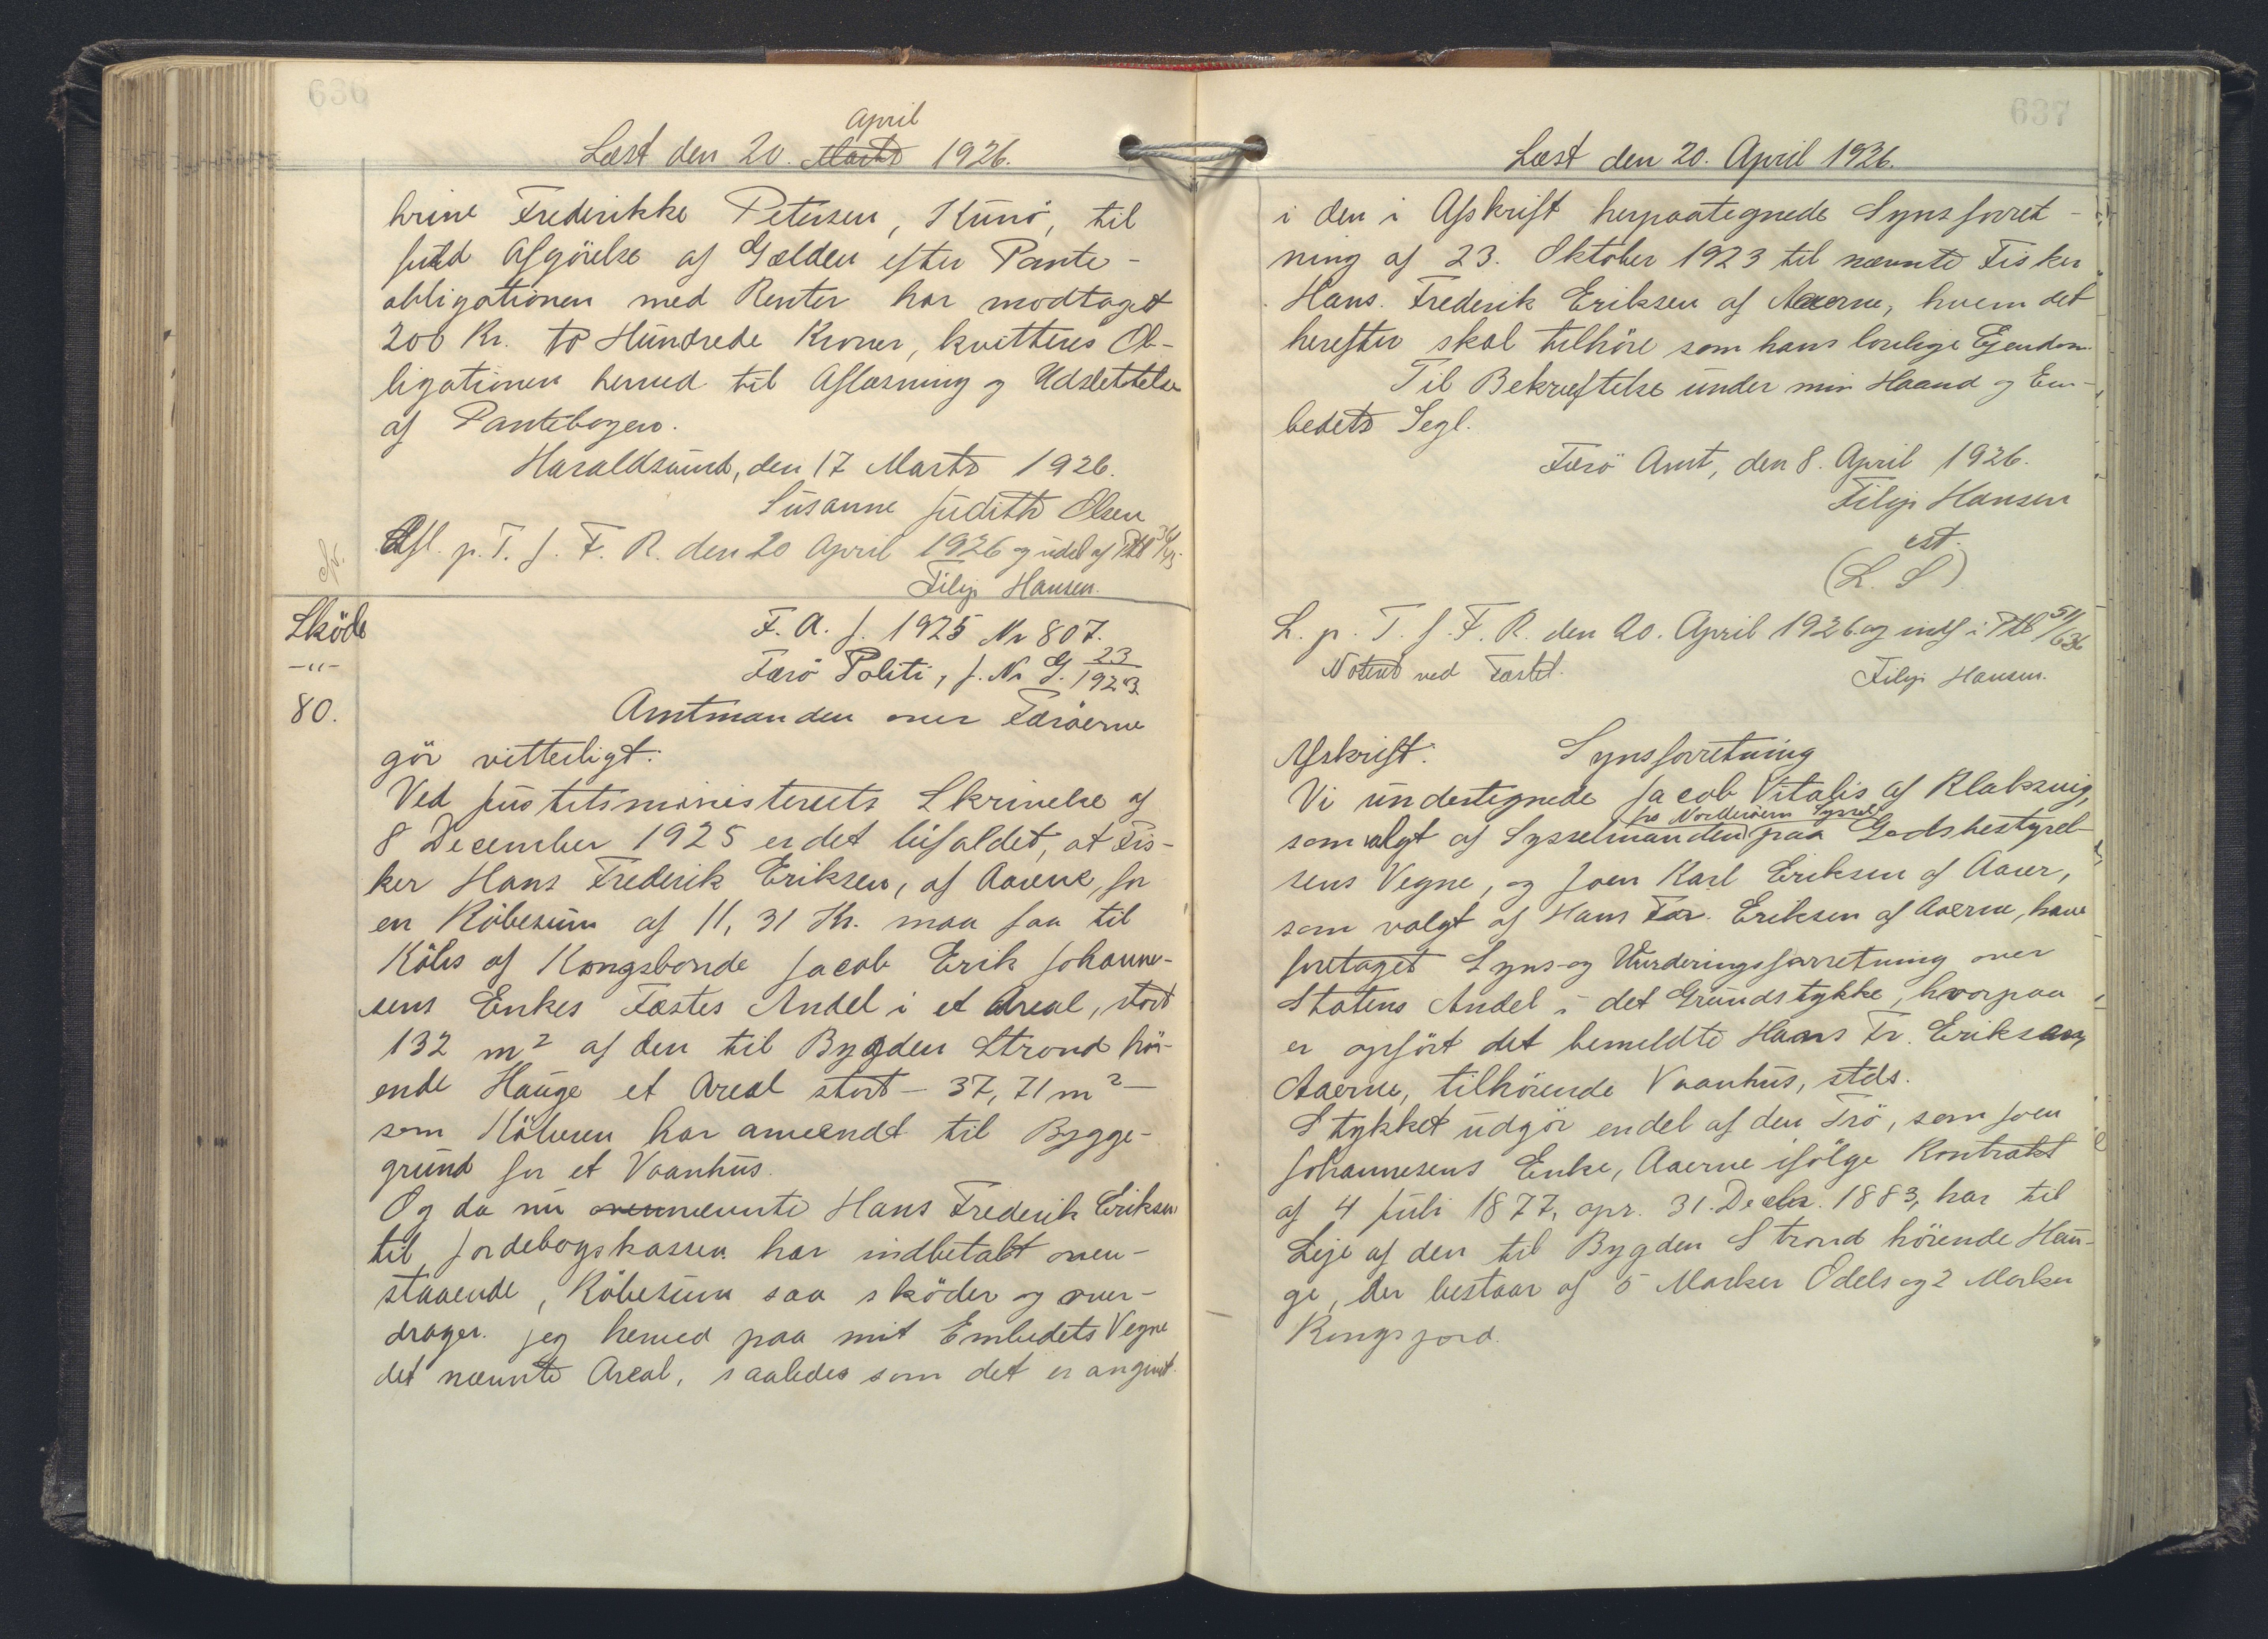 636
April
Læst den 20. Marts 1926.
hrine Frederikke Petersen, Kunö, til
fuld Afgörelse af Gælden efter Pante-
obligationen med Renter har modtaget
200 Kr. to Hundrede Kroner, kvitteres Ob-
ligationen herved til Aflæsning og Udslettelse
af Pantebogen.
Haraldsund, den 17 Marts 1926.
Susanne Judith Olsen
Afl. p. T. f. F. R. den 20 April 1926 og udsl af Ptb
Filip Hansen.
Sköde
-"-
80.
F. A. J. 1925 Nr 807.
Færö Politi, J. Nr G. 23/1923
Amtmanden over Færöerne
gör vitterligt:
Ved Justitsministeriets Skrivelse af
8 December 1925 er det bifaldet, at Fis-
ker Hans Frederik Eriksen, af Aaerne, for
en Köbesum af 11,31 Kr. maa faa til
Köbs af Kongsbonde Jacob Erik Johanne-
sens Enkes Fæstes Andel i et Areal, stort
132 m² af den til Bygden Strond hör-
ende Hauge et Areal stort - 37,71 m² -
som Köberen har anvendt til Bygge-
grund for et Vaanhus.
Og da nu ovennævnte Hans Frederik Eriksen
til Jordebogskassen har indbetalt oven-
staaende, Köbesum saa sköder og over-
drager jeg herved paa mit Embedets Vegne
det nævnte Areal, saaledes som det er angivet
637
Læst den 20. April 1926.
i den i Afskrift herpaategnede Synsforret-
ning af 23. Oktober 1923 til nævnte Fisker
Hans Frederik Eriksen af Aaerne, hvem det
herefter skal tilhöre som hans lovlige Ejendom.
Til Bekræftelse under min Haand og Em-
bedets Segl.
Færö Amt, den 8. April 1926.
Filip Hansen
cst.
(L. S)
L. p. T. f. F. R. den 20. April 1926 og indf i Ptb 51/636
Noteret ved Fæstet. Filip Hansen.
Afskrift: Synsforretning
Vi undertegnede Jacob Vitalis af Klaksvig,
for Norderöerns Syssel
som valgt af Sysselmanden paa Godsbestyrel-
sens Vegne, og Joen Karl Eriksen af Aaer,
som valgt af Hans Fr. Eriksen af Aaerne, have
foretaget Syns- og Vurderingsforretning over
Statens Andel i det Grundstykke, hvorpaa
er opfört det bemeldte Hans Fr. Eriksen,
Aaerne, tilhörende Vaanhus, stds.
Stykket udgör endel af den Trö, som Joen
Johannesens Enke, Aaerne ifölge Kontrakt
af 4 Juli 1877, apr. 31. Decbr. 1883, har til
Leje af den til Bygden Strond hörende Hau-
ge, der bestaar af 5 Marker Odels og 2 Marker
Kongsjord.